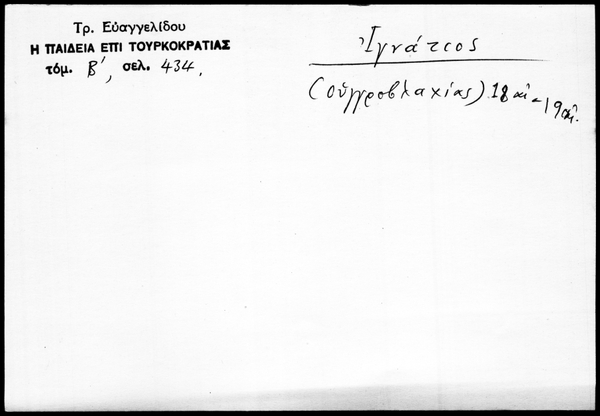 Τρ. Εὐαγγελίδου
Η ΠΑΙΔΕΙΑ ΕΠΙ ΤΟΥΡΚΟΚΡΑΤΙΑΣ
τόμ. Β', σελ. 434,
Ἰγνάτιος
(Οὑγγροβλαχίας) 18 αἰ - 19 αἰ.